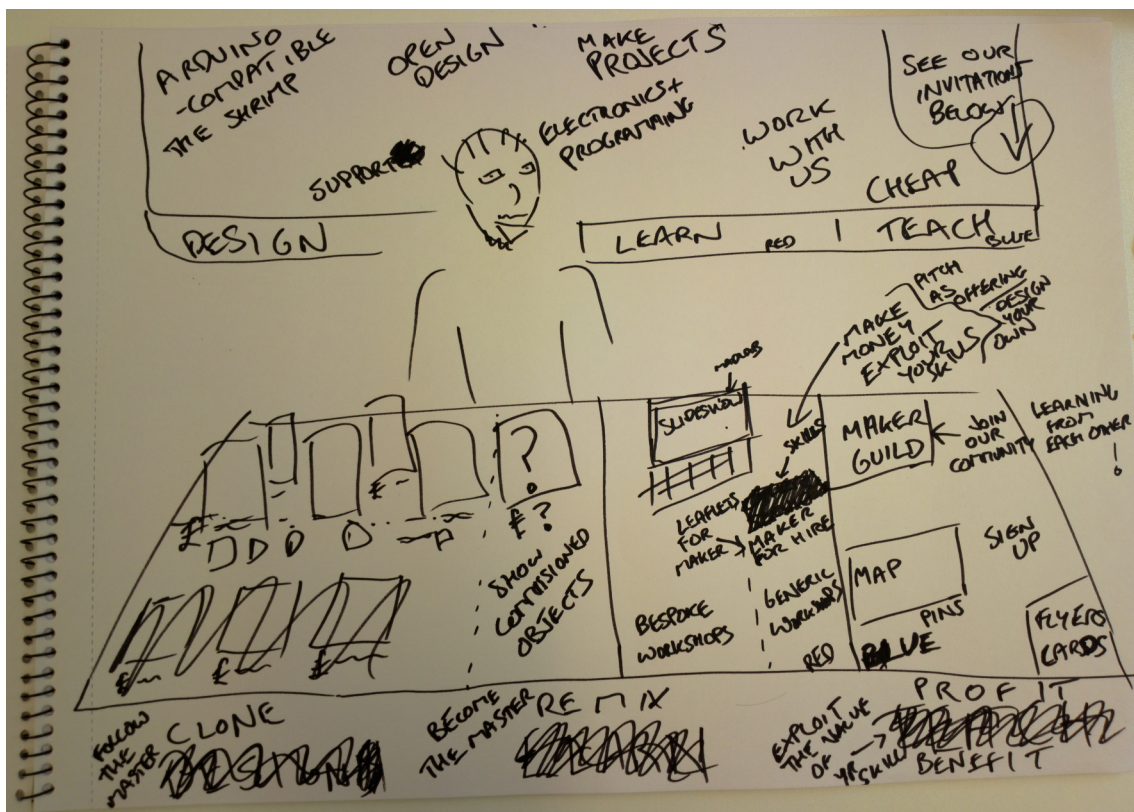 ARDUINO
-COMPATIBLE
THE SHRIMP
OPEN
DESIGN
MAKE
PROJECTS
SEE OUR
INVITATION
BELOW
SUPPORT
ELECTRONICS+
PROGRAMING
WORK
WITH
US
CHEAP
DESIGN
LEARN
RED
TEACH
BLUE
PITCH
AS OFFERING
DESIGN
YOUR
OWN
MAKE
MONEY
EXPLOIT
YOUR
SKILLS
SLIDESHOW
SKILLS
MAKER
GUILD
JOIN
OUR
COMMUNITY
LEARNING
FROM
EACH OTHER
!
?
£ ?
SHOW
COMMISSIONED
OBJECTS
LEAFLETS
FOR
MAKER
MAKER
FOR HIRE
BESPOKE
WORKSHOPS
GENERIC
WORKSHOPS
RED
MAP
PINS
BLUE
SIGN
UP
FLYERS
CARDS
FOLLOW
THE
MASTER
CLONE
BECOME
THE MASTER
REMIX
EXPLOIT
THE VALUE
OF
YR SKILL
PROFIT
BENEFIT